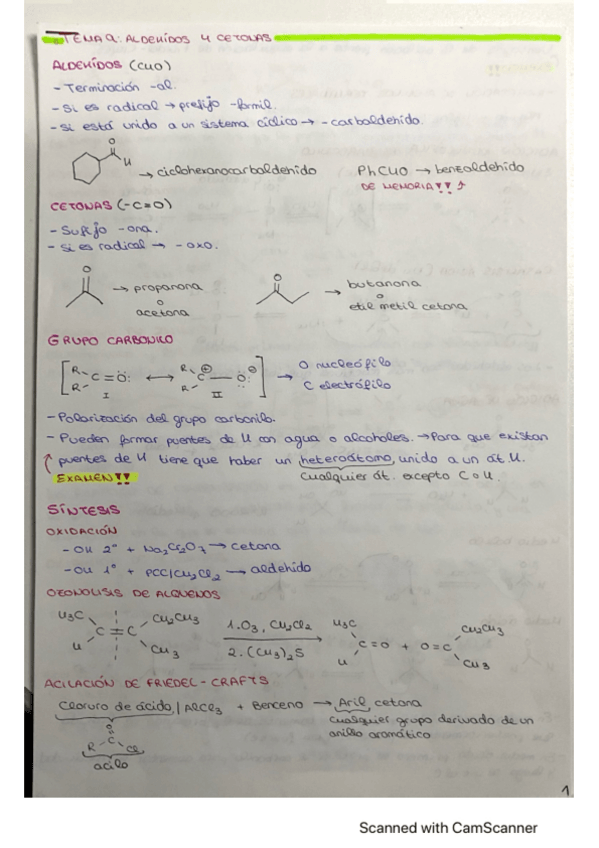 TEMA 9: ALDEHÍDOS Y CETONAS
ALDEHÍDOS (CHO)
- Terminación -al.
- Si es radical → prefijo -formil.
- Si está unido a un sistema cíclico → -carbaldehido.
O
H
→ ciclohexanocarbaldehido
PhCHO → benzaldehido
DE MEMORIA!! ↑
CETONAS (-C=O)
- Sufijo -ona.
- Si es radical → -oxo.
O
→ propanona
o
acetona
O
→ butanona
o
etil metil cetona
GRUPO CARBONILO
[R R C=Ö: ↔ R R C⊕—Ö:⊖]
I II
→ O nucleófilo
C electrófilo
- Polarización del grupo carbonilo.
- Pueden formar puentes de H con agua o alcoholes. → Para que existan
puentes de H tiene que haber un heteroátomo, unido a un át. H.
EXAMEN!!
Cualquier át. acepto C o H.
SÍNTESIS
OXIDACIÓN
- OH 2º + Na₂Cr₂O₇ → cetona
- OH 1º + PCC/CH₂Cl₂ → aldehido
OZONOLISIS DE ALQUENOS
H₃C H C=C CH₂CH₃ CH₃
1. O₃, CH₂Cl₂
2. (CH₃)₂S
H₃C H C=O + O=C CH₂CH₃ CH₃
ACILACIÓN DE FRIEDEL-CRAFTS
Cloruro de ácido / AlCl₃ + Benceno → Aril cetona
Cualquier grupo derivado de un
anillo aromático
O
R C Cl
acilo
1
Scanned with CamScanner